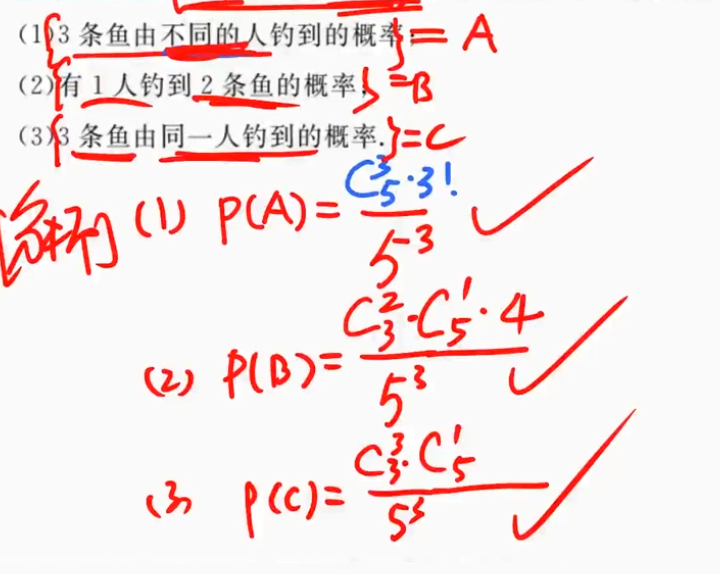 (1){3 条鱼由不同的人钓到的概率;} = A
(2){有 1 人钓到 2 条鱼的概率;} = B
(3){3 条鱼由同一人钓到的概率.} = C
(1) P(A) = C₅³·3! / 5³ ✓
(2) P(B) = C₃²·C₅¹·4 / 5³ ✓
(3) P(C) = C₃³·C₅¹ / 5³ ✓